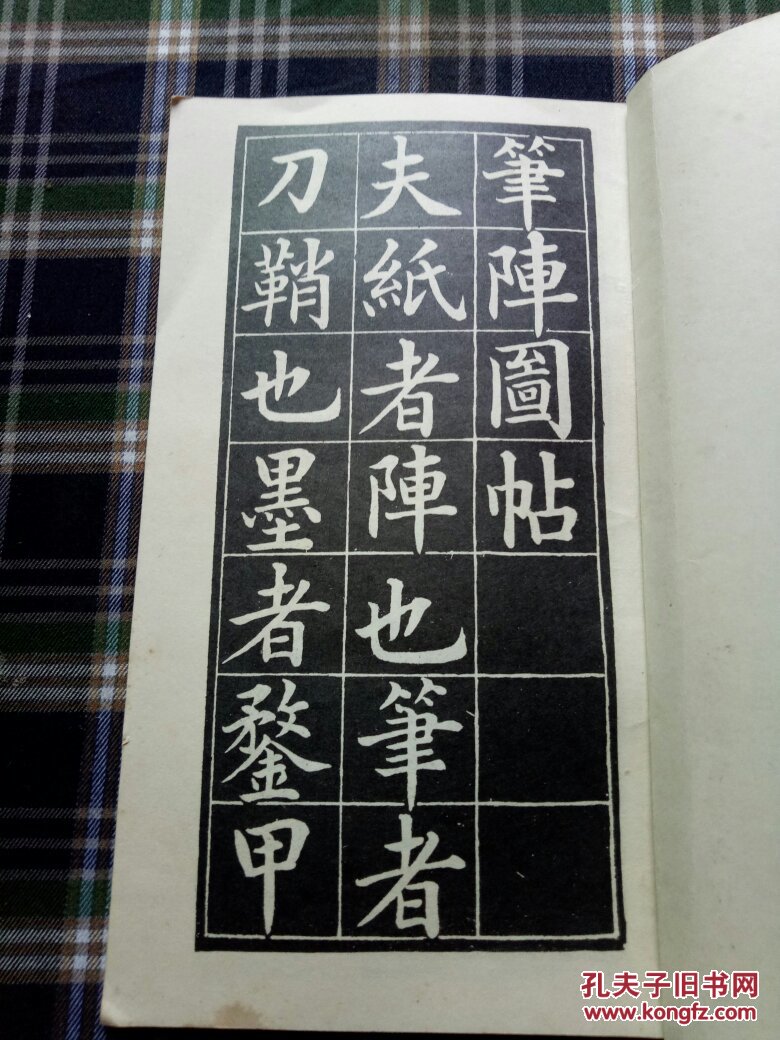 筆陣圖帖
夫紙者陣也筆者
刀鞘也墨者鍪甲
孔夫子旧书网
www.kongfz.com